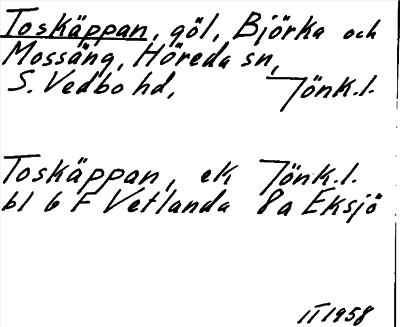 Toskäppan, göl, Björka och
Mossäng, Höreda sn,
S. Vedbo hd, Jönk.l.
Toskäppan, ek Jönk.l.
bl 6 F Vetlanda 8a Eksjö
II 1958